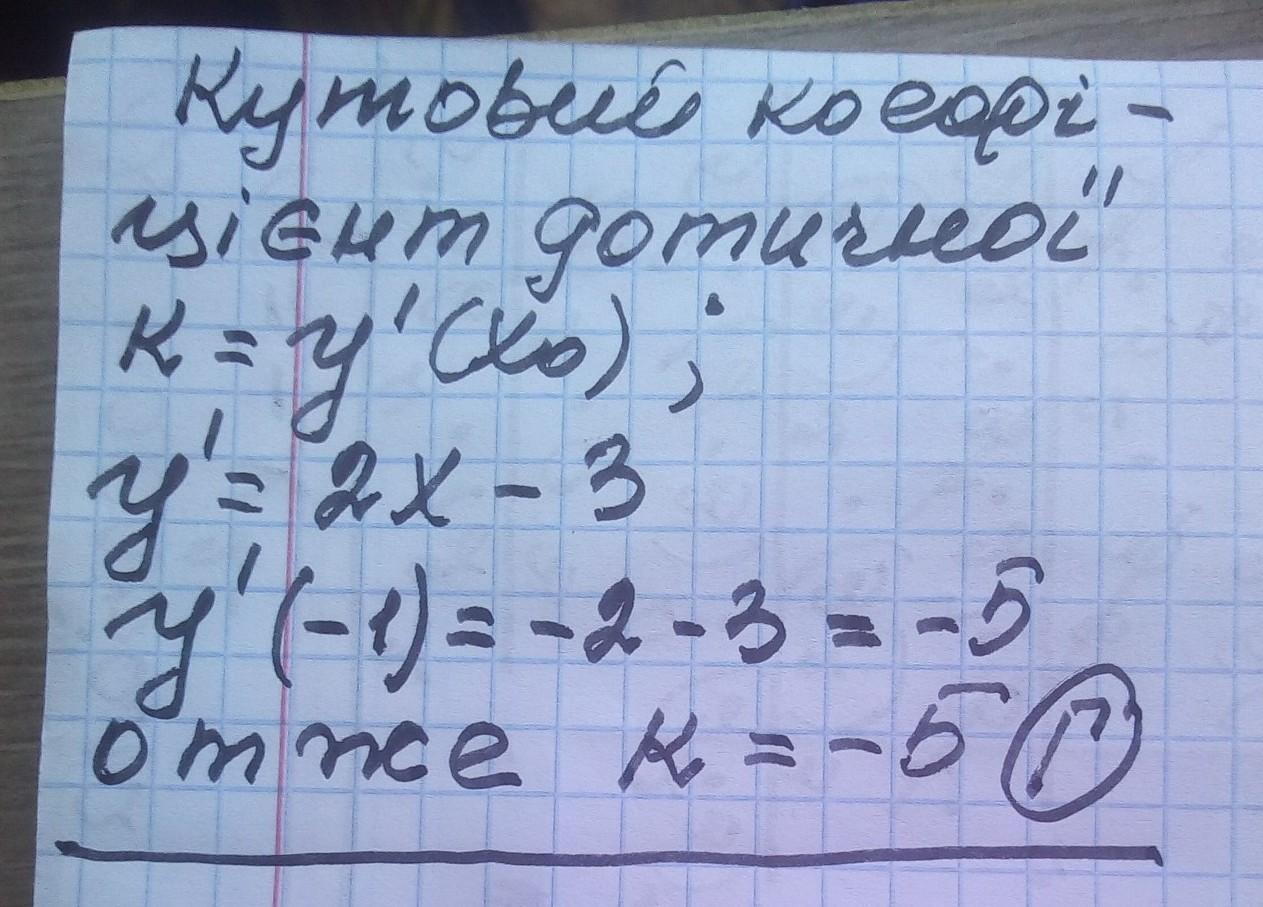 Кутовий коефі-
цієнт дотичної
к = y'(x₀);
y' = 2x - 3
y'(-1) = -2 - 3 = -5
отже к = -5 Г